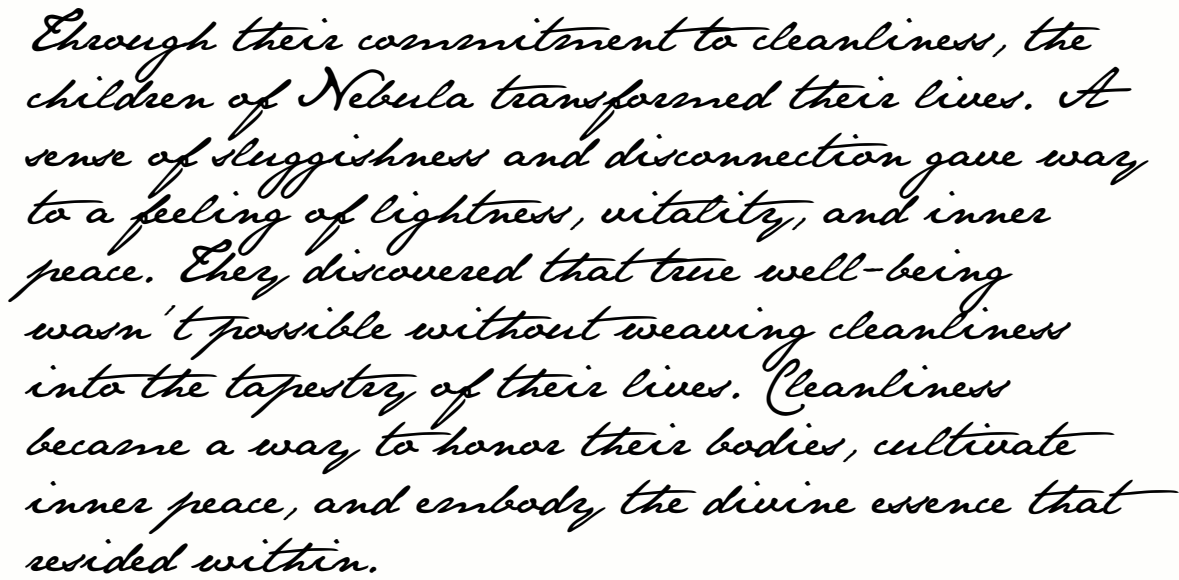 Through their commitment to cleanliness, the
children of Nebula transformed their lives. A
sense of sluggishness and disconnection gave way
to a feeling of lightness, vitality, and inner
peace. They discovered that true well-being
wasn't possible without weaving cleanliness
into the tapestry of their lives. Cleanliness
became a way to honor their bodies, cultivate
inner peace, and embody the divine essence that
resided within.